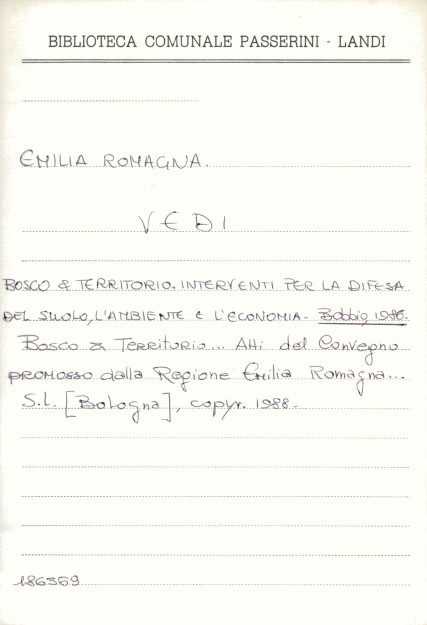 BIBLIOTECA COMUNALE PASSERINI - LANDI
EMILIA ROMAGNA.
VEDI
BOSCO & TERRITORIO. INTERVENTI PER LA DIFESA
DEL SUOLO, L'AMBIENTE E L'ECONOMIA. Bobbio 1986.
Bosco & Territorio... Atti del Convegno
promosso dalla Regione Emilia Romagna...
S.L. [Bologna], copyr. 1988.
186369